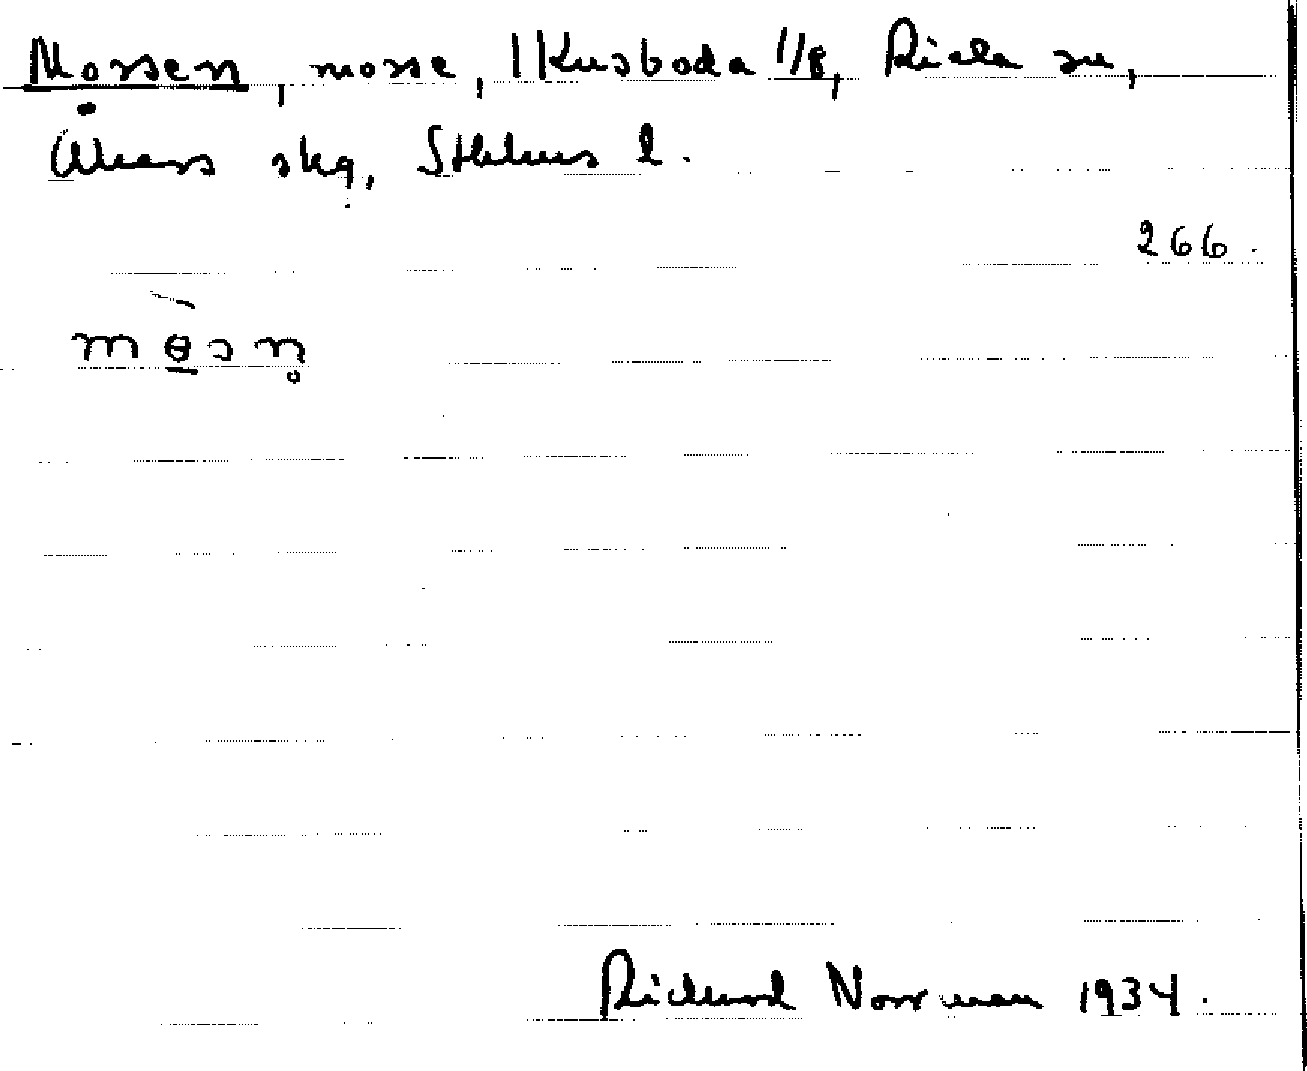 Mossen, mosse, 1 Kusboda 1/8, Riala sn,
Åkers skg, Sthlms l.
266.
mɵ̀sn̥
Richard Norrman 1934.